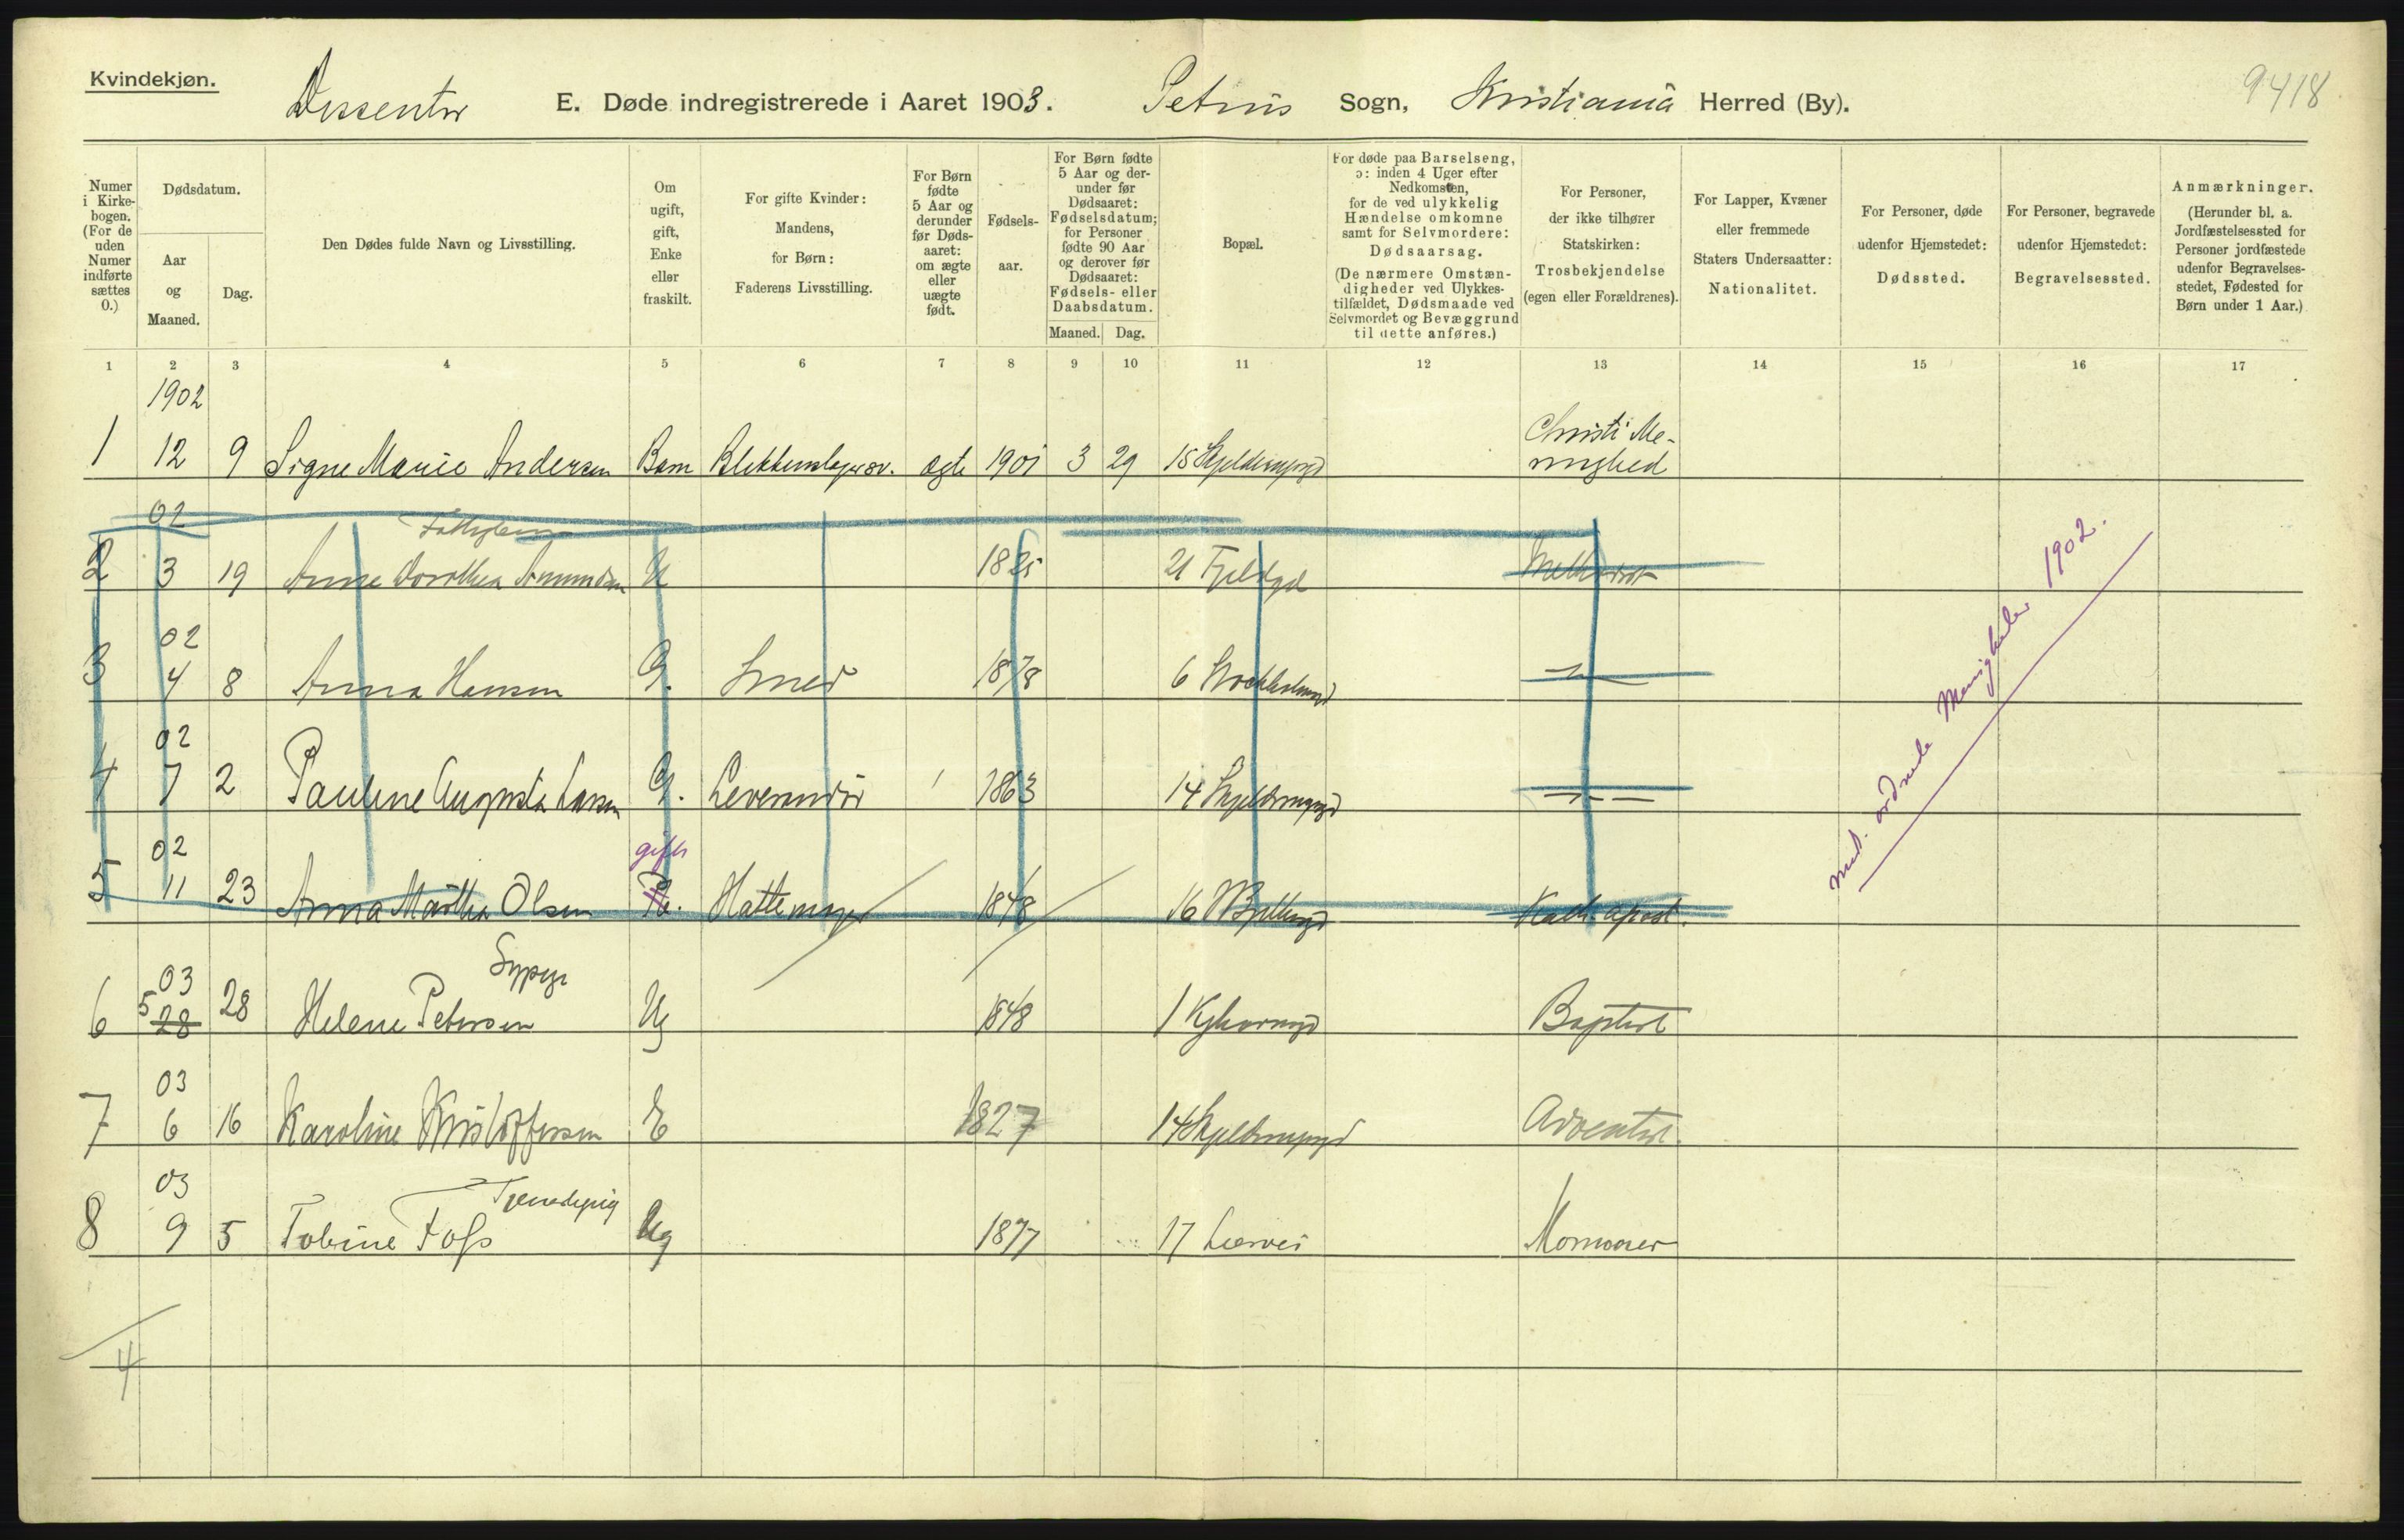 Kvindekjøn.
Dissenter E. Døde indregistrerede i Aaret 1903. Petrus Sogn, Kristiania Herred (By).
9418
Numer i Kirke-bogen. (For de uden Numer indførte sættes 0.)
Dødsdatum.
Aar og Maaned.
Dag.
Den Dødes fulde Navn og Livsstilling.
Om ugift, gift, Enke eller fraskilt.
For gifte Kvinder: Mandens, for Børn: Faderens Livsstilling.
For Børn fødte 5 Aar og derunder før Døds-aaret: om ægte eller uægte født.
Fødsels-aar.
For Børn fødte 5 Aar og der-under før Dødsaaret: Fødselsdatum; for Personer fødte 90 Aar og derover før Dødsaaret: Fødsels- eller Daabsdatum.
Maaned. Dag.
Bopæl.
For døde paa Barselseng, ɔ: inden 4 Uger efter Nedkomsten, for de ved ulykkelig Hændelse omkomne samt for Selvmordere: Dødsaarsag. (De nærmere Omstæn-digheder ved Ulykkes-tilfældet, Dødsmaade ved Selvmordet og Bevæggrund til dette anføres.)
For Personer, der ikke tilhører Statskirken: Trosbekjendelse (egen eller Forældrenes).
For Lapper, Kvæner eller fremmede Staters Undersaatter: Nationalitet.
For Personer, døde udenfor Hjemstedet: Dødssted.
For Personer, begravede udenfor Hjemstedet: Begravelsessted.
Anmærkninger. (Herunder bl. a. Jordfæstelsessted for Personer jordfæstede udenfor Begravelses-stedet, Fødested for Børn under 1 Aar.)
1 2 3 4 5 6 7 8 9 10 11 12 13 14 15 16 17
1902
1 12 9 Signe Marie Andersen Barn Blikkenslagersv. ægte 1901 3 29 15 Christi Me-
nighed
02
2 3 19 Anne Dorothea Amundsen U 1825 21 Methodist
02
3 4 8 Anna Hansen G. Smed 1878 6
02
4 7 2 Pauline Augusta Larsen G. 1863 14
02 gift
5 11 23 Anna Martha Olsen Hattemager 1848 16 Kath. apost.
Sypige
03
6 5 28 28 Helene Petersen Ug 1848 1 Baptist
03
7 6 16 Karoline Kristoffersen E 1827 14 Adventist.
03 Tjenestepig
8 9 5 Tobine Foss Ug 1877 17 Mormoner
4
med. ordnede Menigheder 1902.